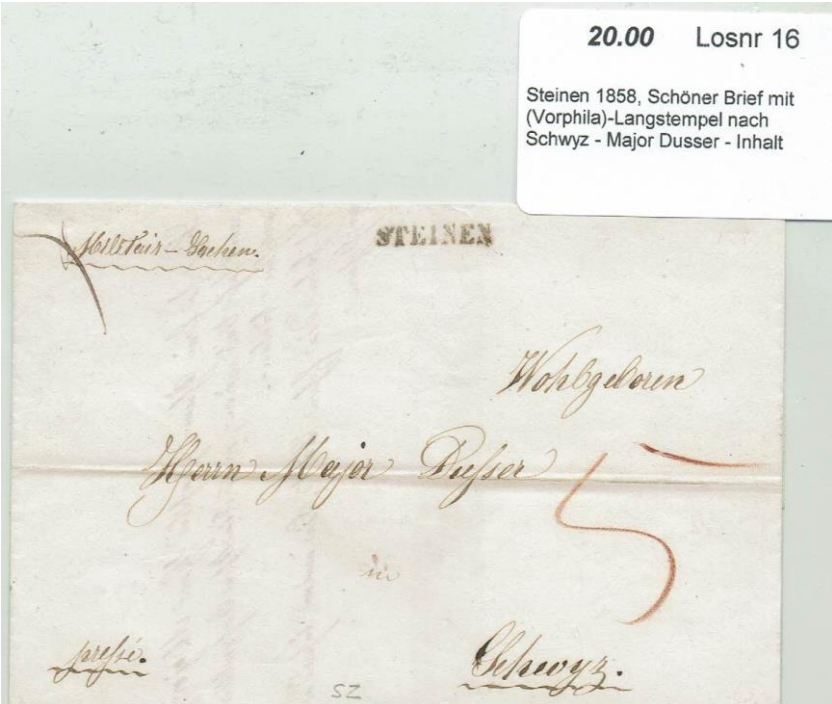 20.00 Losnr 16
Steinen 1858, Schöner Brief mit
(Vorphila)-Langstempel nach
Schwyz - Major Dusser - Inhalt
Militair-Sachen.
STEINEN
Wohlgeboren
Herrn Major Dusser
in
5
pressé.
Schwyz.
SZ